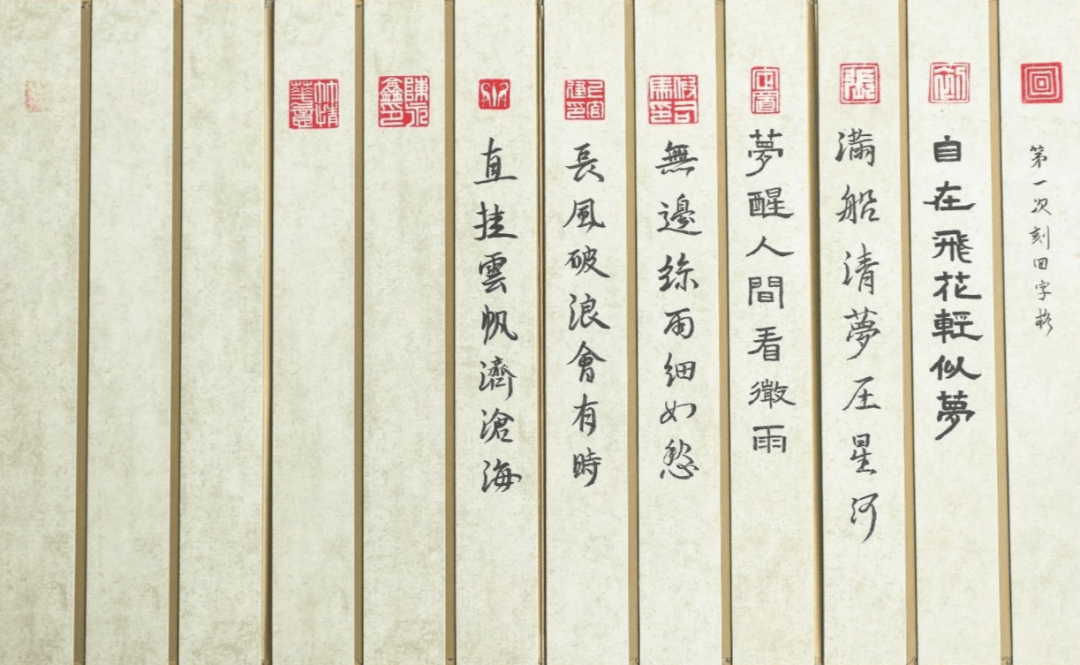 第一次刻田字格
自在飛花輕似夢
張
滿船清夢压星河
夢醒人間看微雨
假司馬印
無邊絲雨細如愁
長風破浪會有時
直挂雲帆濟滄海